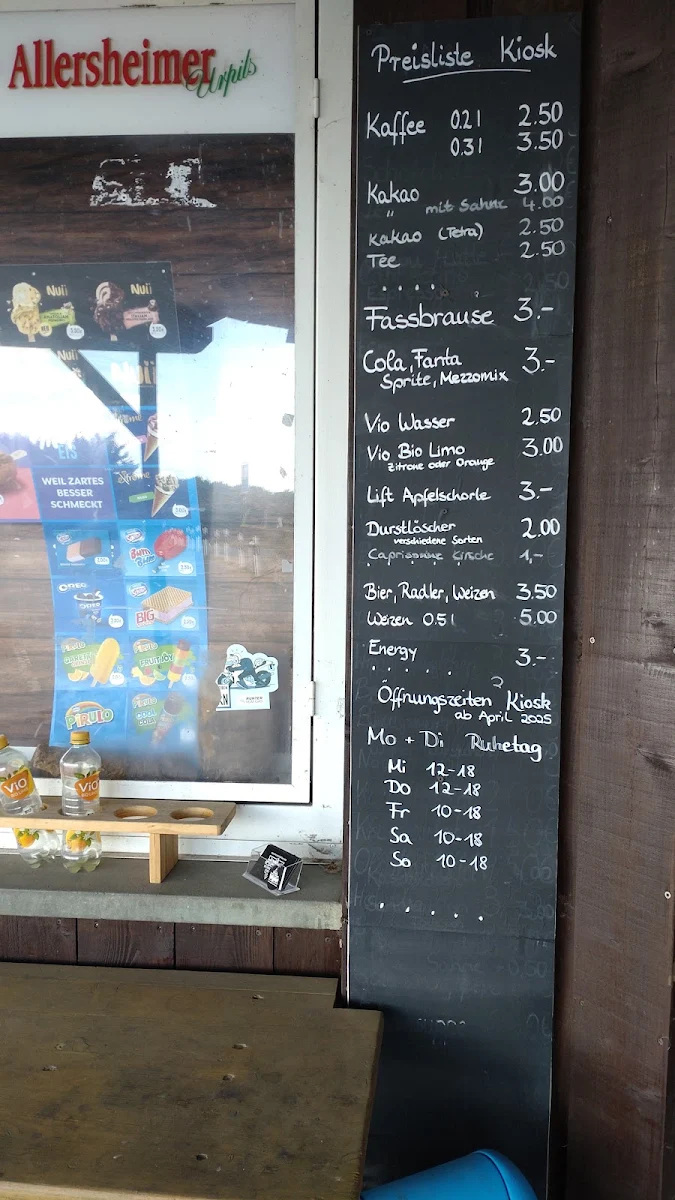 Allersheimer
Urpils
Nuii
Nuii
Nuii
Nuii
EIS
WEIL ZARTES
BESSER
SCHMECKT
Xtreme
OREO
Bum
Bum
BIG
PIRULO
FRUITJOY
PIRULO
PIRULO
ViO
ViO
Preisliste Kiosk
Kaffee 0.2l 2.50
0.3l 3.50
Kakao 3.00
" mit Sahne 4.00
Kakao (Tetra) 2.50
Tee 2.50
. . . .
Fassbrause 3.-
Cola, Fanta 3.-
Sprite, Mezzomix
Vio Wasser 2.50
Vio Bio Limo 3.00
Zitrone oder Orange
Lift Apfelschorle 3.-
Durstlöscher 2.00
verschiedene Sorten
Caprisonne Kirsche 1,-
Bier, Radler, Weizen 3.50
Weizen 0.5l 5.00
Energy 3.-
. . . . .
Öffnungszeiten Kiosk
ab April 2025
Mo + Di Ruhetag
Mi 12-18
Do 12-18
Fr 10-18
Sa 10-18
So 10-18
. . . . .